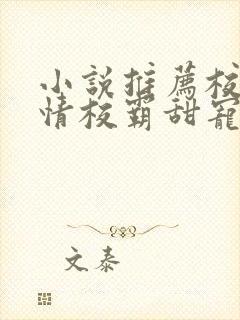 小說推薦校
情校霸甜寵
文泰